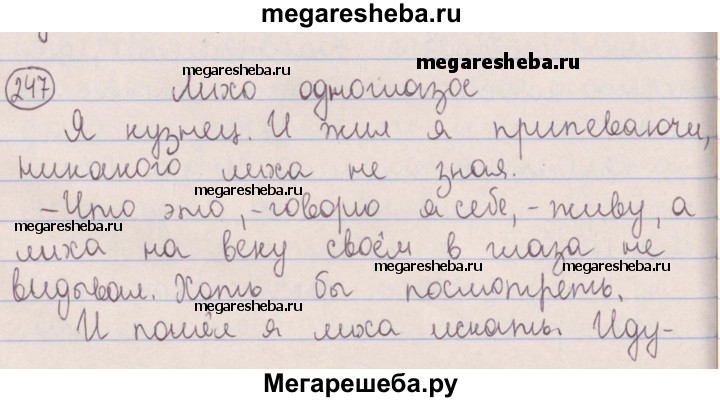 megaresheba.ru
megaresheba.ru
megaresheba.ru
247 Лихо одноглазое
Я кузнец. И жил я припеваючи,
никакого лиха не зная.
megaresheba.ru
– Что это, – говорю я себе, – живу, а
megaresheba.ru
лиха на веку своём в глаза не
megaresheba.ru
megaresheba.ru
видывал. Хоть бы посмотреть.
И пошёл я лиха искать. Иду –
Мегарешеба.ру